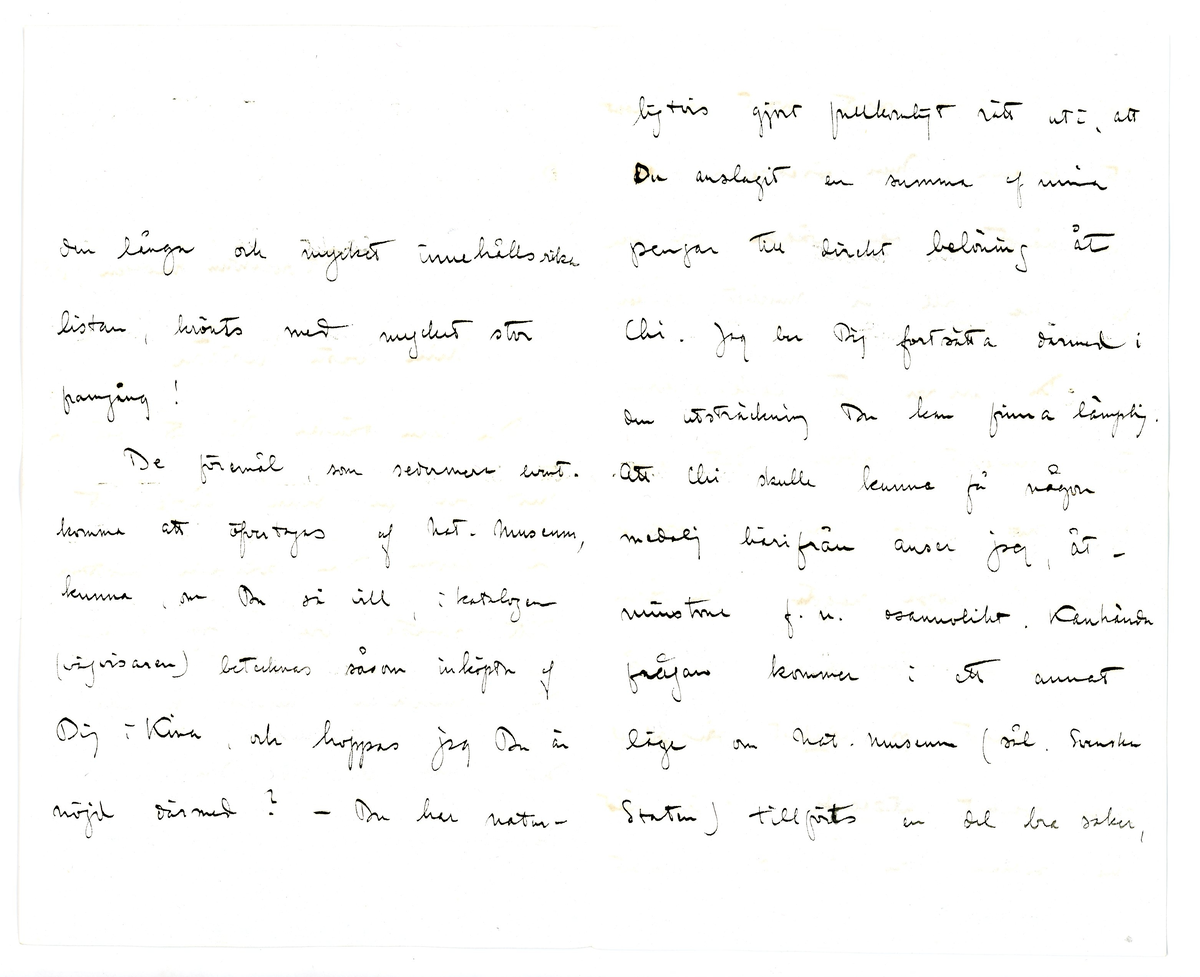 den långa och mycket innehållsrika
listan, krönts med mycket stor
framgång!
De föremål, som sedermera event.
komma att öfvertagas af Nat. Museum,
kunna, om Du så vill, i katalogen
(vägvisaren) betecknas såsom inköpta af
Dig i Kina, och hoppas jag Du är
nöjd därmed? — Du har natur-
ligtvis gjort fullkomligt rätt uti, att
Du anslagit en summa af mina
pengar till direkt belöning åt
Chi. Jag ber Dig fortsätta därmed i
den utsträckning Du kan finna lämplig.
Att Chi skulle kunna få någon
medalj härifrån anser jag, åt-
minstone f. n. osannolikt. Kanhända
frågan kommer i ett annat
läge om Nat. Museum (sål. Svenska
Staten) tillförts en del bra saker,